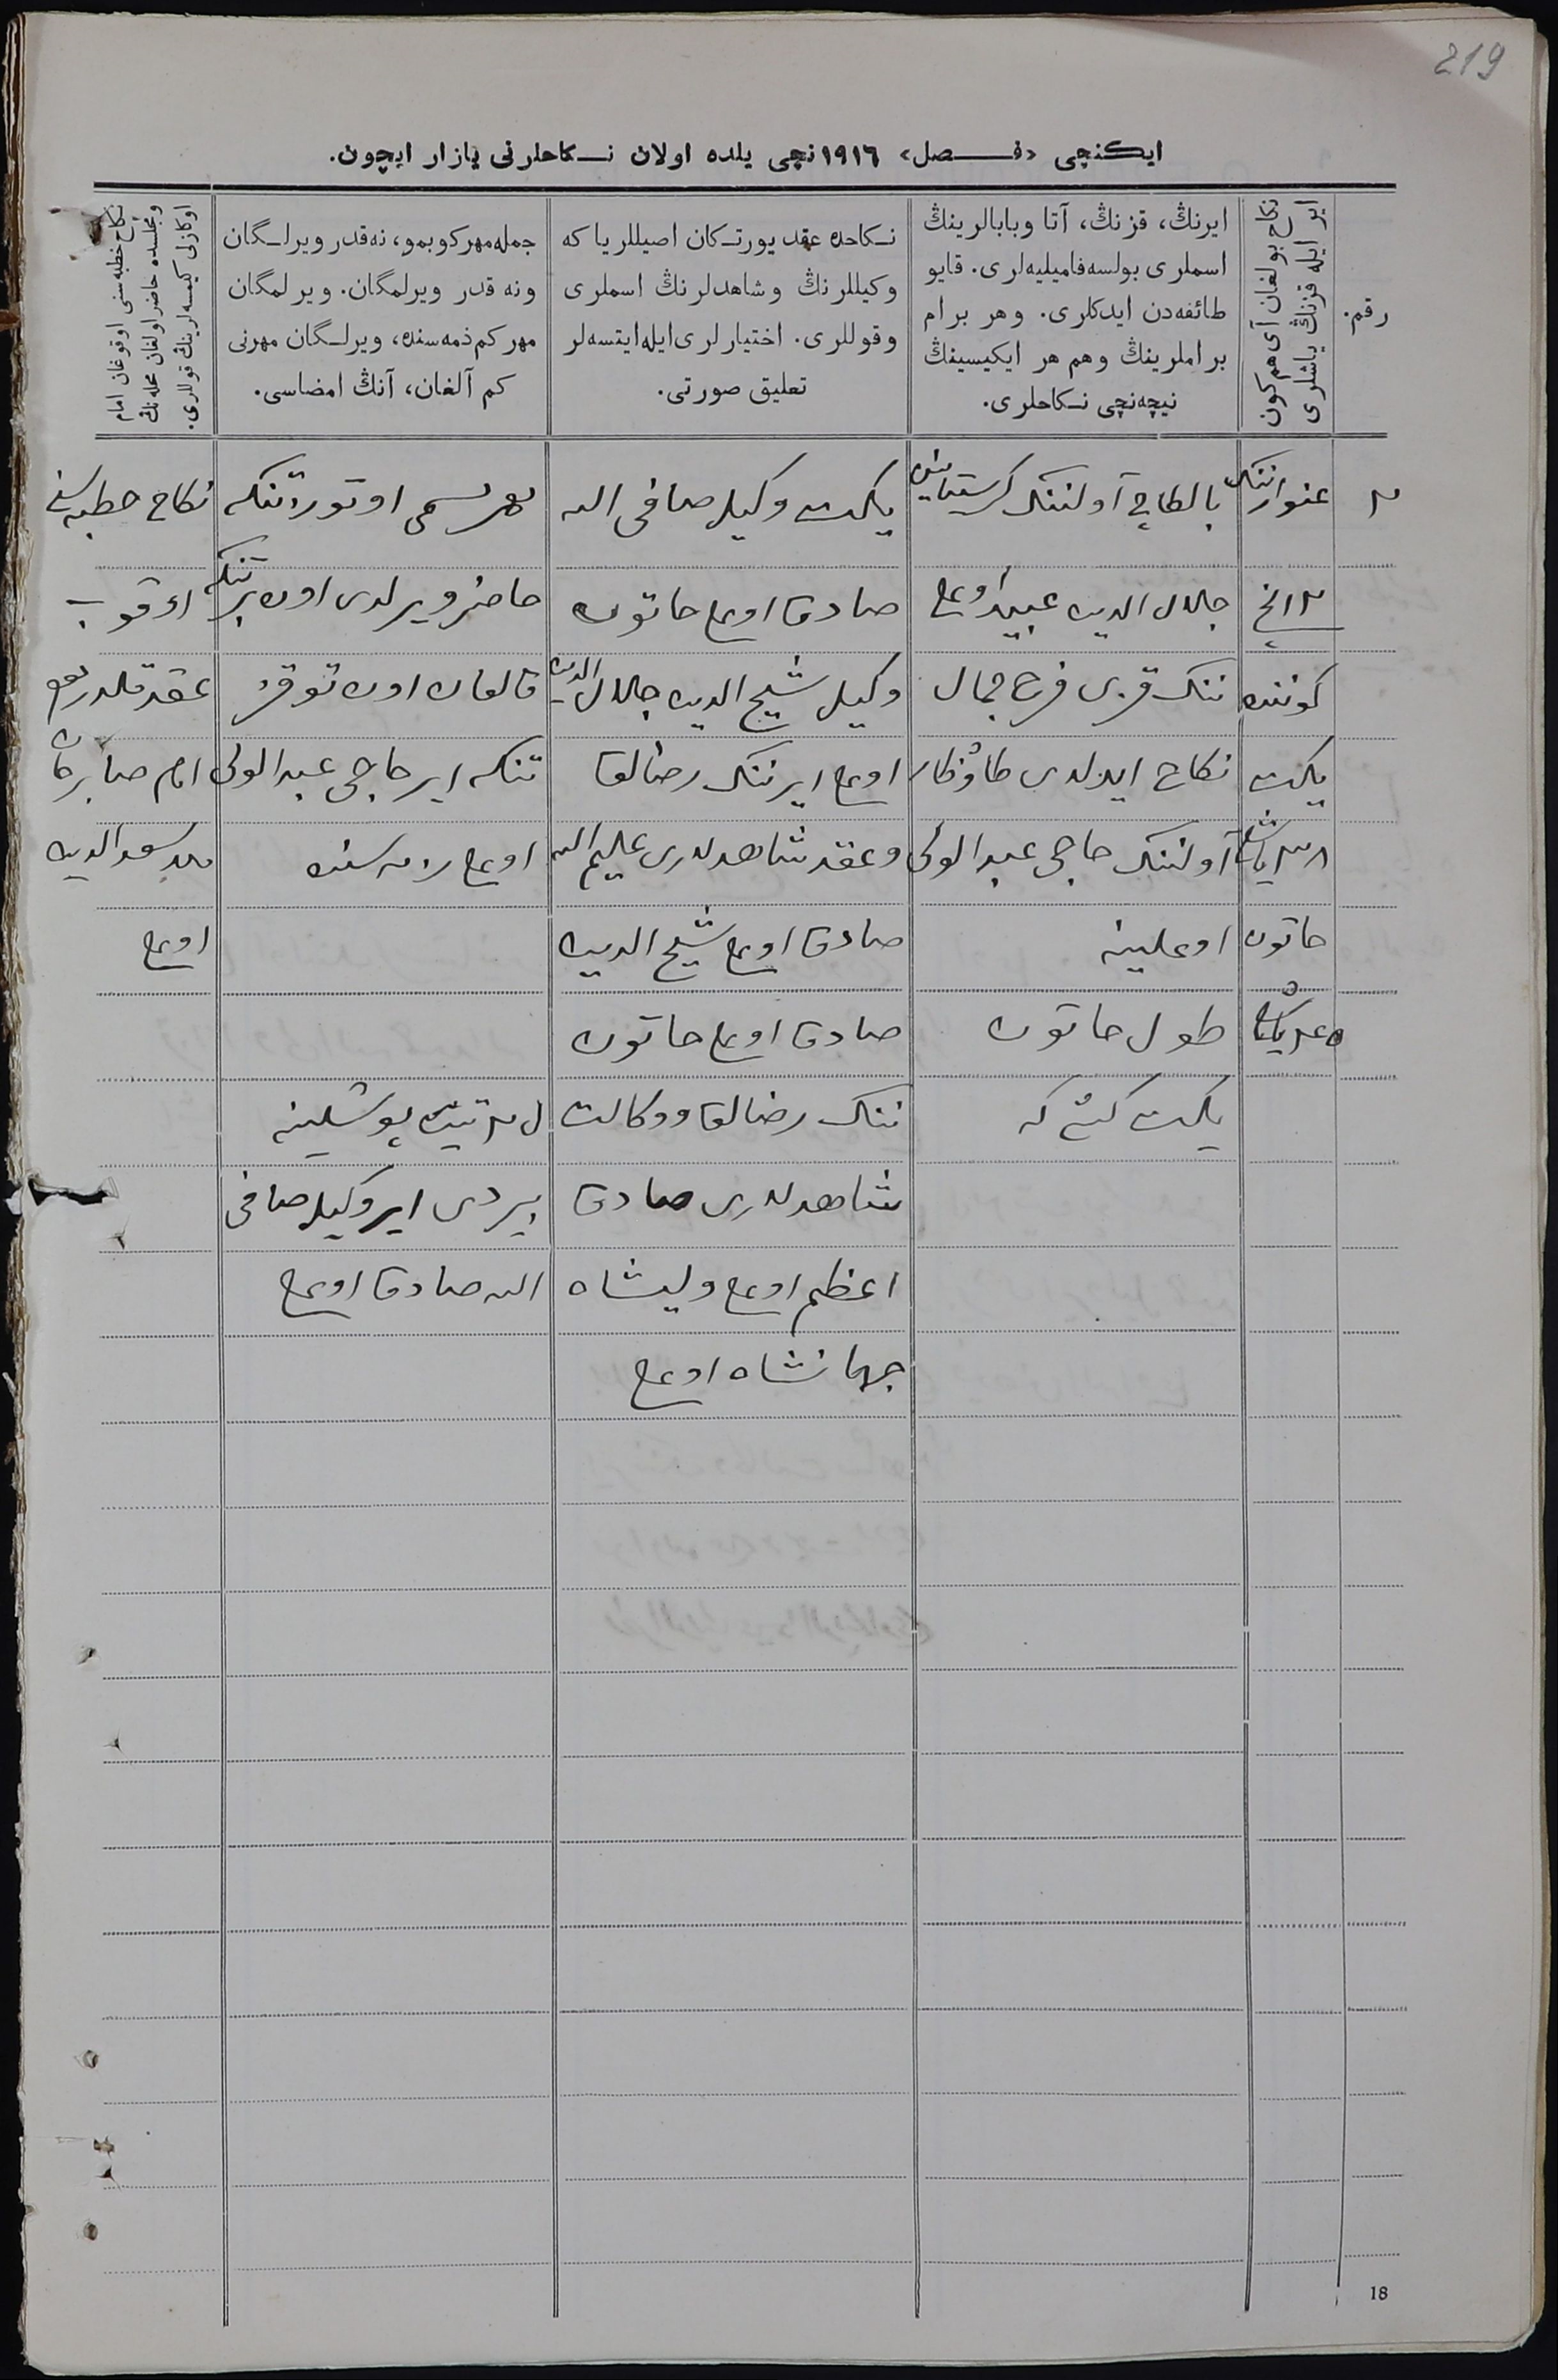 219
ایكنچی «فصل» ١٩١٦نچی یلده اولان نكاحلرنی یازار ایچون.
رقم.
نكاح بولغان آی هم كون
ایر ایله قزنڭ یاشلری
ایرنڭ، قزنڭ، آتا وبابالرینڭ
اسملری بولسه فامیلیه‌لری. قایو
طائفه‌دن ایدكلری. وهر برام
براملرینڭ وهم هر ایكیسینڭ
نیچه‌نچی نكاحلری.
نكاحده عقد یورتكان اصیللریا كه
وكیللرنڭ وشاهدلرنڭ اسملری
وقوللری. اختیارلری ایله ایتسه‌لر
تعلیق صورتی.
جمله مهر كوبمو، نه‌قدر ویرلگان
ونه قدر ویرلمگان. ویرلمگان
مهر كم ذمه‌سنده، ویرلگان مهرنی
كم آلغان، آنڭ امضاسی.
نكاح خطبه‌سنی اوقوغان امام
ومجلسده حاضر اولغان محله‌نڭ
اوكازلی كیسه‌لرینڭ قوللری.
٢
غنوارننك
٢ انچی
كوننده
یكت
یاشده
خاتون
بالطاچ آولننك كرستیانین
جلال الدین عبید اوغلی
ننك قزی فرح جمال
نكاح ایدلدی
آولننك حاجی عبدالولی
اوغلینه
طول خاتون
یكت كشی كه
یكت وكیلی صافی الله
صادق اوغلی خاتون
وكیلی شیخ الدین جلال الدین
اوغلی ایرننك رضالق
وعقد شاهدلری علیم الله
صادق اوغلی شیخ الدین
صادق اوغلی خاتون
ننك رضالق ووكالت
شاهدلری صادق
اعظم اوغلی ولیشاه
جهانشاه اوغلی
مهر مسمی اوتوز تنكه
حاضر ویرلدی اون بر تنكه
قالغان اون توقز
تنكه ایر حاجی عبدالولی
اوغلی ذمه سنده
بیردی ایر وكیلی صافی
الله صادق اوغلی
نكاح خطبه سنی
اوقوب
عقد قلدردم
امام صابرجان
سعدالدین
اوغلی
18